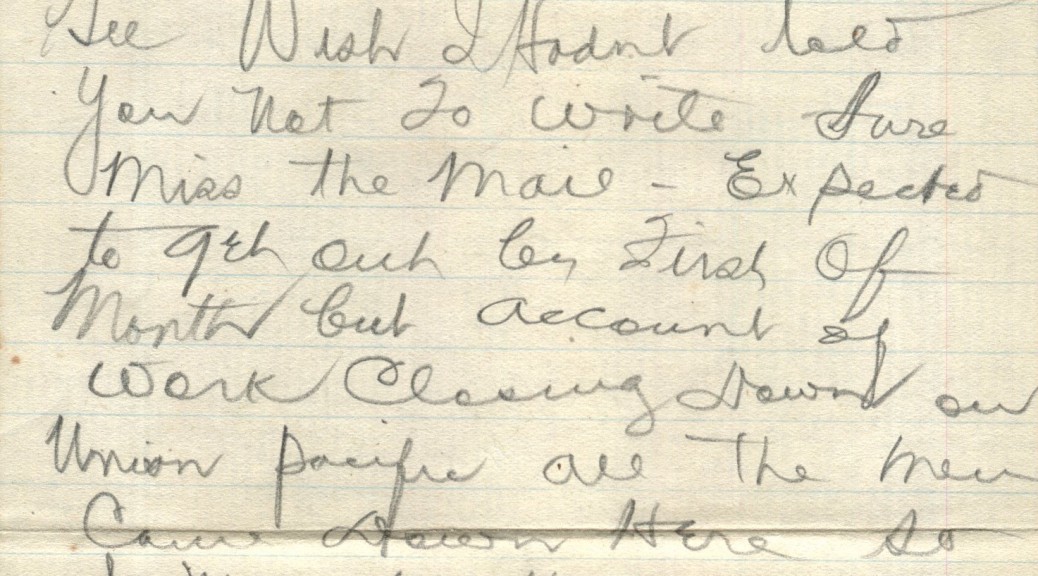 Gee Wish I Hadnt told
You Not To write Sure
Miss the Mail - Expected
to get out by First Of
Month but account of
Work Closing Down on
Union pacific all The men
Came Down Here So